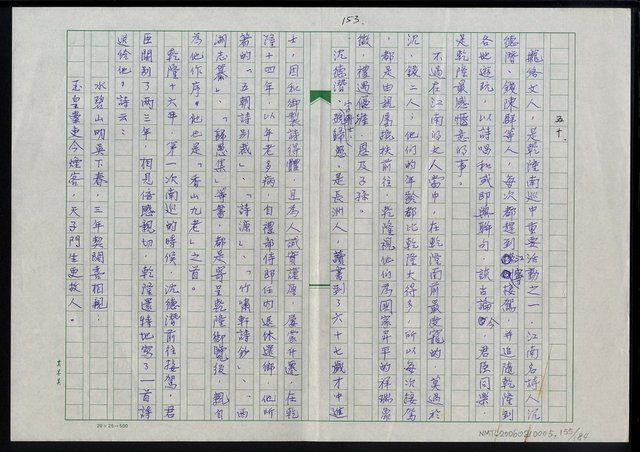 153.
五十、
籠絡文人，是乾隆南巡中重要活動之一，江南名詩人沈
德潛、錢陳群等人，每次都趕到江寧接駕，并追隨乾隆到
各地遊玩，以詩唱和或即興聯句，談古論今，君臣同樂，
是乾隆最感愜意的事。
不過在江南的文人當中，在乾隆南前最受寵的，莫過於
沈、錢二人，他們的年齡都比乾隆大得多，所以每次接駕
，都是由親屬攙扶前往，乾隆視他們為國家昇平的祥瑞象
徵，禮遇優隆，恩及子孫。
沈德潛，字確士，號歸愚，是長洲人，讀書到了六十七歲才中進
士，因和御製詩得體，且為人誠實謹厚，屢蒙升遷，在乾
隆十四年，以年老多病，自禮部侍郎任內退休還鄉，他所
著的「五朝詩別裁」、「詩源」、「竹嘯軒詩鈔」、「西
湖志纂」、「歸愚集」等書，都是寄呈乾隆御覽後，親自
為他作序。他也是「香山九老」之首。
乾隆十六年，第一次南巡的時候，沈德潛前往接駕，君
臣闊別了兩三年，相見倍感親切，乾隆還特地寫了一首詩
送給他。詩云：
水碧山明吳下春，三年契闊喜相親；
玉皇案吏今煙客，天子門生更故人。
20×25=500
NMTL20060510005.155/84